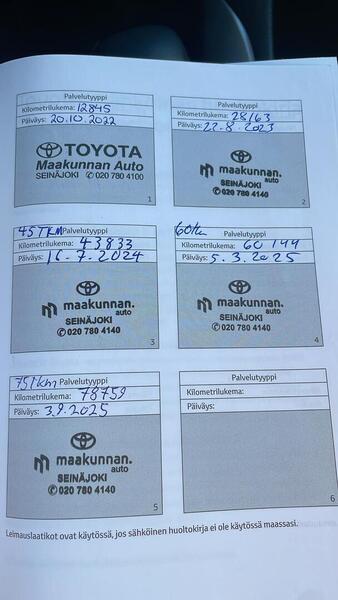 Palvelutyyppi
Kilometrilukema: 12845
Päiväys: 20.10.2022
TOYOTA
Maakunnan Auto
SEINÄJOKI ✆ 020 780 4100
1
Palvelutyyppi
Kilometrilukema: 28163
Päiväys: 22.8.2023
maakunnan.
auto
SEINÄJOKI
✆ 020 780 4140
2
45TKM Palvelutyyppi
Kilometrilukema: 43833
Päiväys: 16.7.2024
maakunnan.
auto
SEINÄJOKI
✆ 020 780 4140
3
Palvelutyyppi
Kilometrilukema: 60144
Päiväys: 5.3.2025
maakunnan.
auto
SEINÄJOKI
✆ 020 780 4140
4
75Tkm Palvelutyyppi
Kilometrilukema: 78759
Päiväys: 3.9.2025
maakunnan.
auto
SEINÄJOKI
✆ 020 780 4140
5
Palvelutyyppi
Kilometrilukema:
Päiväys:
6
Leimauslaatikot ovat käytössä, jos sähköinen huoltokirja ei ole käytössä maassasi.